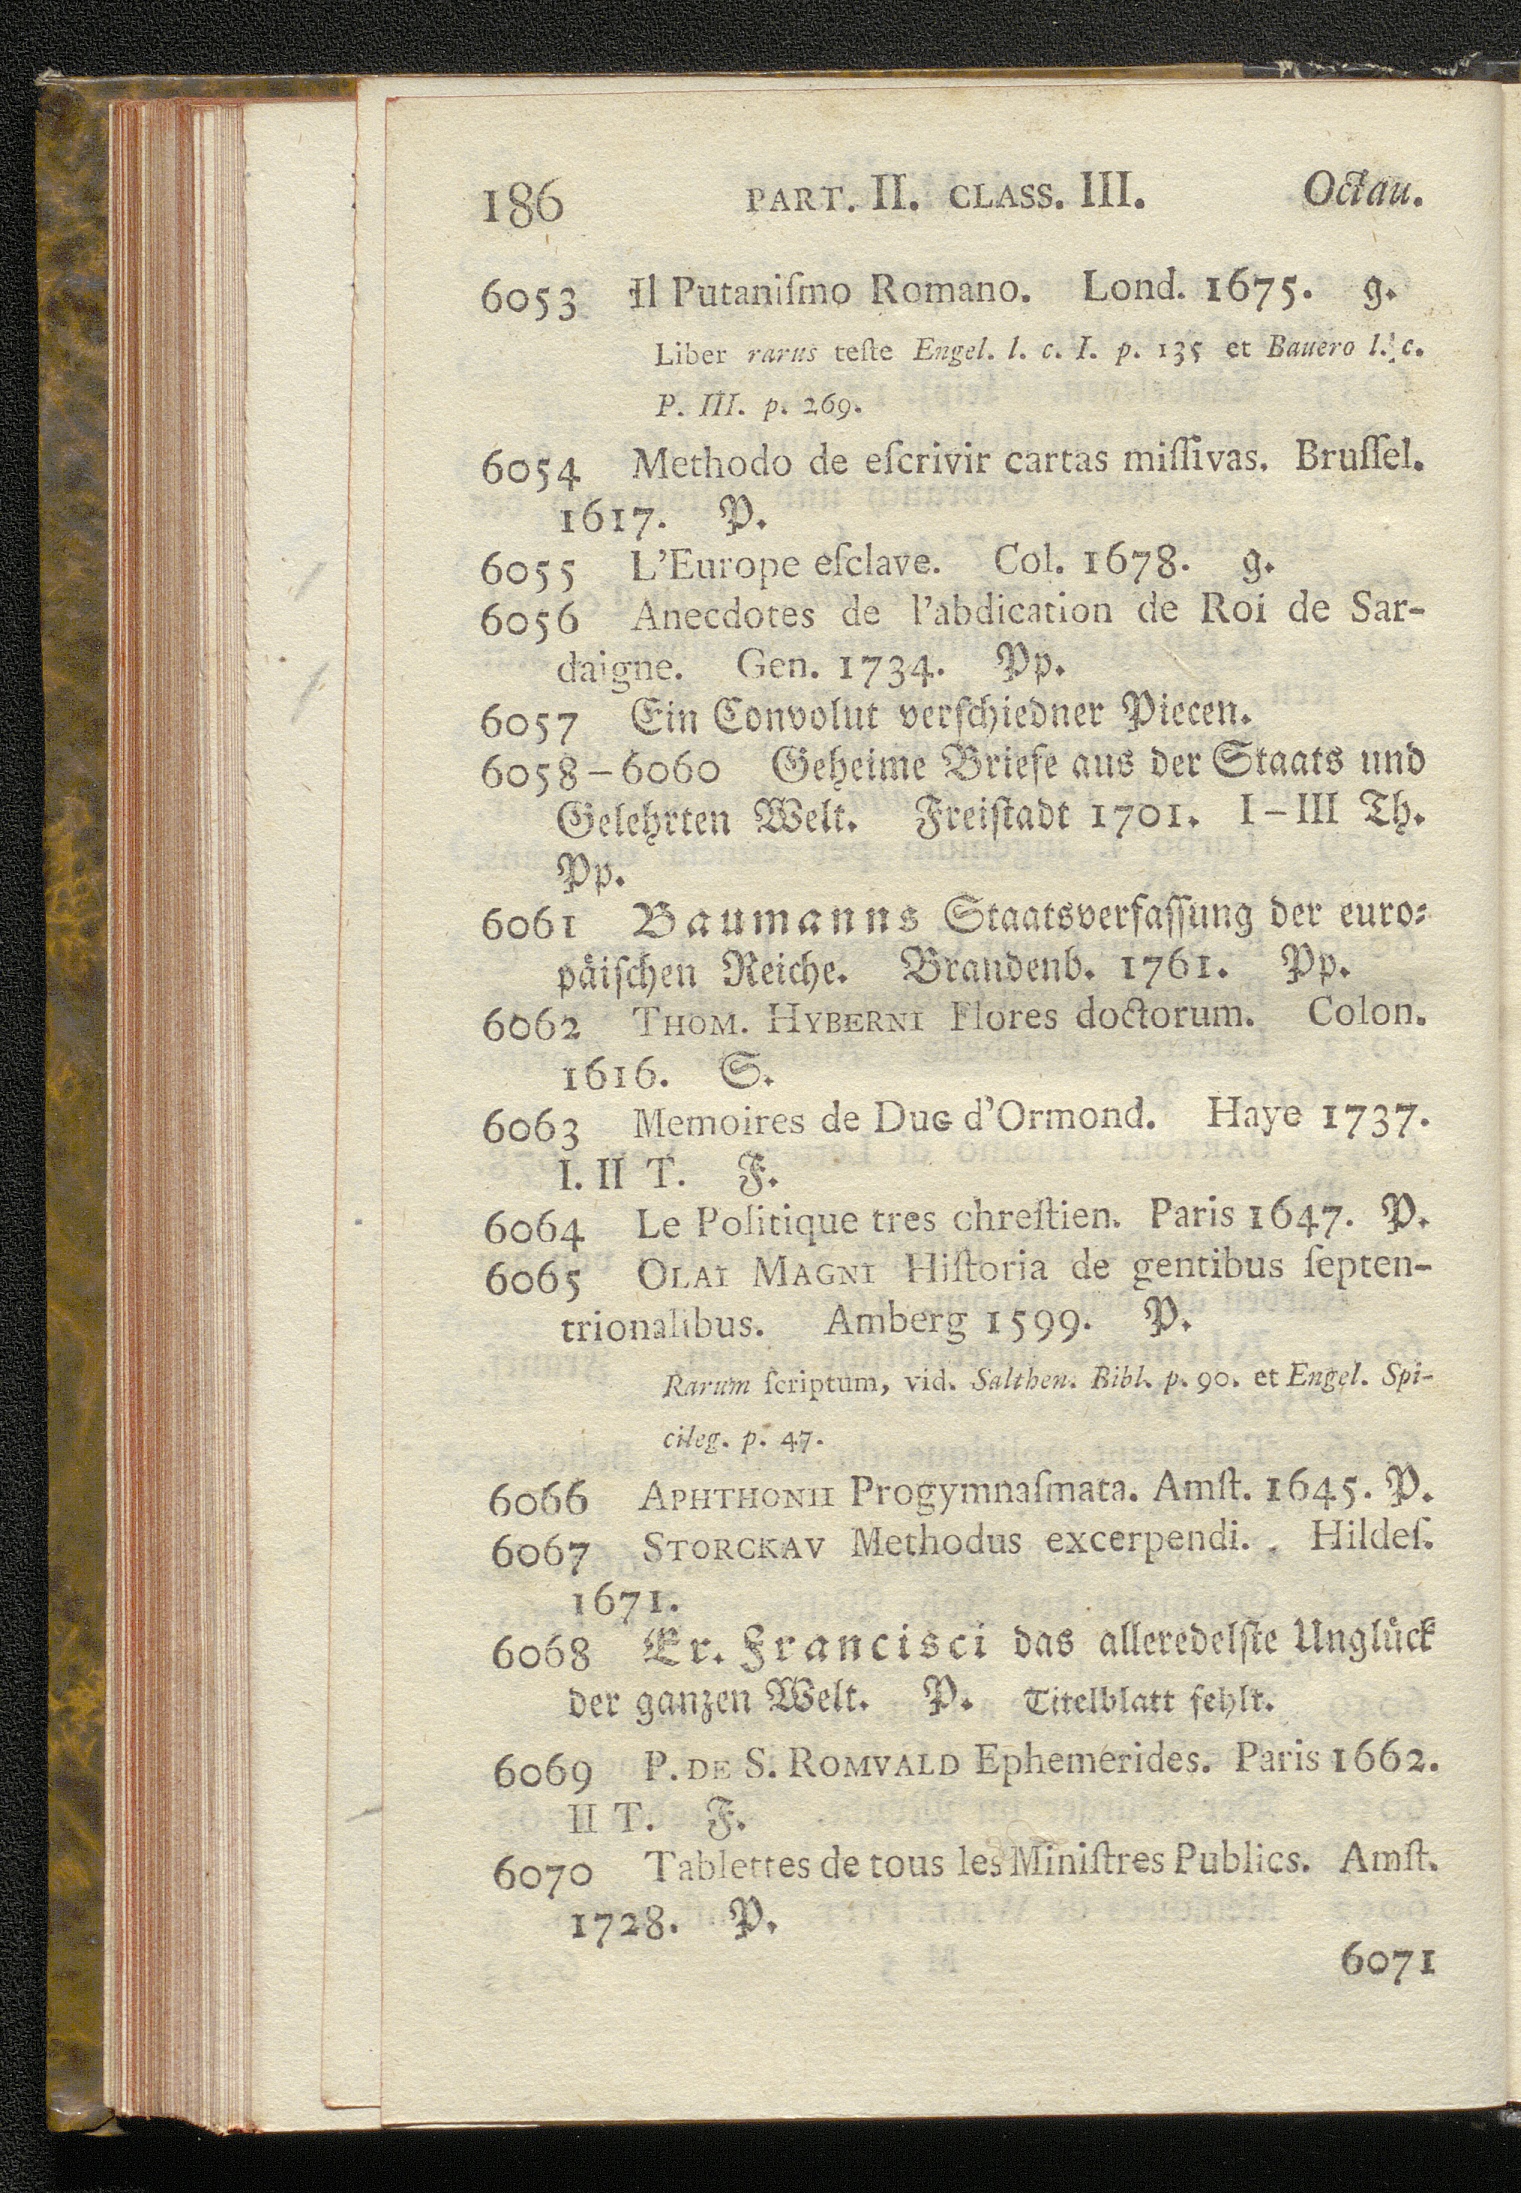 186 PART. II. CLASS. III. Octau.
6053 Il Putaniſmo Romano. Lond. 1675. g.
Liber rarus teſte Engel. l. c. I. p. 135 et Bauero l. c.
P. III. p. 269.
6054 Methodo de eſcrivir cartas miſſivas. Bruſſel.
1617. P.
6055 L'Europe eſclave. Col. 1678. g.
6056 Anecdotes de l'abdication de Roi de Sar-
daigne. Gen. 1734. Pp.
6057 Ein Convolut verſchiedner Piecen.
6058–6060 Geheime Briefe aus der Staats und
Gelehrten Welt. Freiſtadt 1701. I–III Th.
Pp.
6061 Baumanns Staatsverfaſſung der euro-
päiſchen Reiche. Brandenb. 1761. Pp.
6062 THOM. HYBERNI Flores doctorum. Colon.
1616. S.
6063 Memoires de Duc d'Ormond. Haye 1737.
I. II T. F.
6064 Le Politique tres chreſtien. Paris 1647. P.
6065 OLAI MAGNI Hiſtoria de gentibus ſepten-
trionalibus. Amberg 1599. P.
Rarum ſcriptum, vid. Salthen. Bibl. p. 90. et Engel. Spi-
cileg. p. 47.
6066 APHTHONII Progymnaſmata. Amſt. 1645. P.
6067 STORCKAV Methodus excerpendi. Hildeſ.
1671.
6068 Er. Franciſci das alleredelſte Unglück
der ganzen Welt. P. Titelblatt fehlt.
6069 P. DE S. ROMVALD Ephemerides. Paris 1662.
II T. F.
6070 Tablettes de tous les Miniſtres Publics. Amſt.
1728. P.
6071